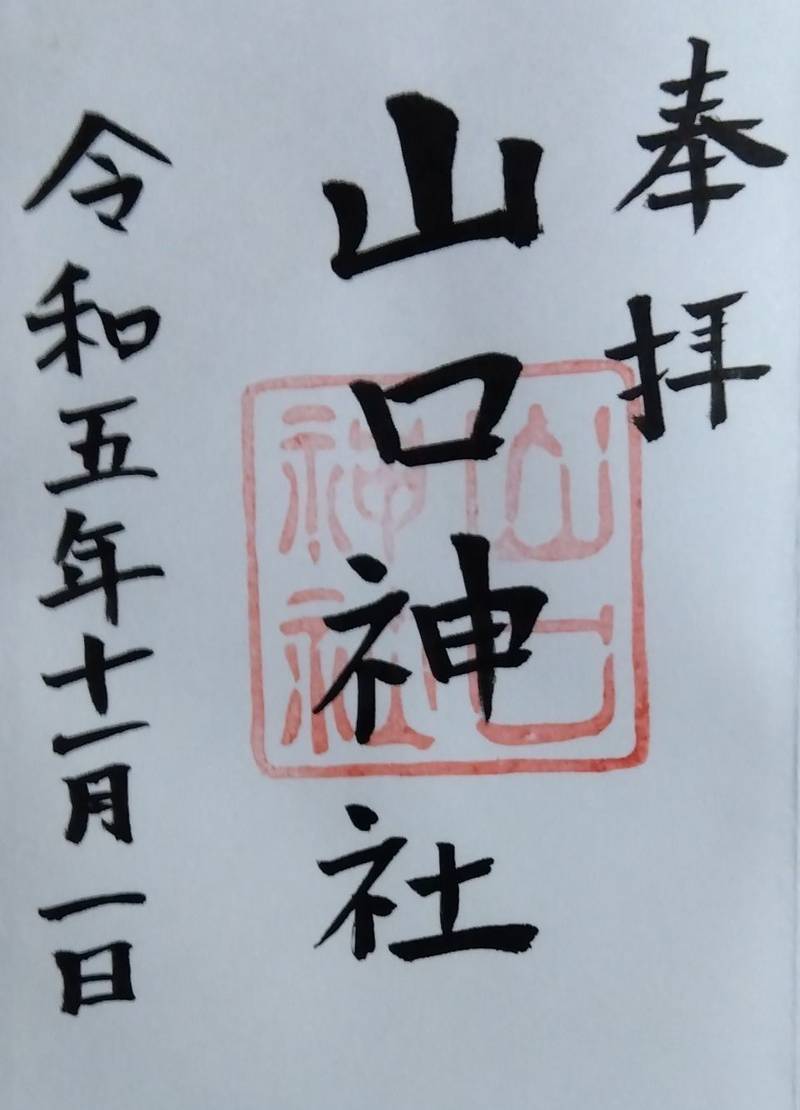 奉拝
山口神社
山口神社
令和五年十一月一日